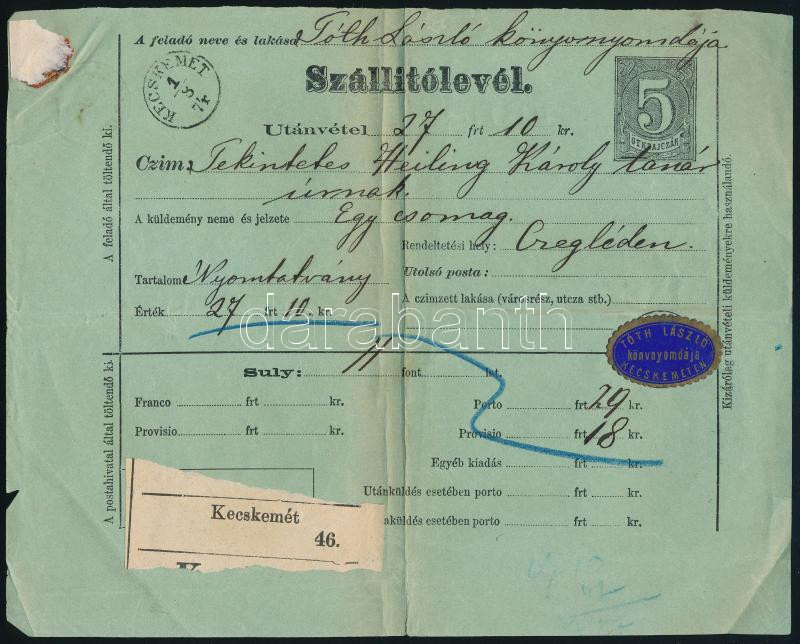 A feladó neve és lakása Tóth László könyvnyomdája
Szállitólevél.
KECSKEMÉT
1/3
74
5
ÖT KRAJCZÁR
Utánvétel 27 frt 10 kr.
Czim: Tekintetes Heiling Károly tanár
úrnak.
A küldemény neme és jelzete Egy csomag.
Rendeltetési hely: Czegléden.
Tartalom Nyomtatvány
Utolsó posta:
Érték 27 frt 10. kr.
A czimzett lakása (városrész, utcza stb.)
A feladó által töltendő ki.
Kizárólag utánvételi küldeményekre használandó.
darabanth
TÓTH LÁSZLÓ
könyvnyomdája
KECSKEMÉTEN
Suly: 11 font lat.
Franco frt kr.
Porto frt 29 kr.
Provisio frt kr.
Provisio frt 18 kr.
Egyéb kiadás frt kr.
Utánküldés esetében porto frt kr.
aküldés esetében porto frt kr.
A postahivatal által töltendő ki.
Kecskemét
46.